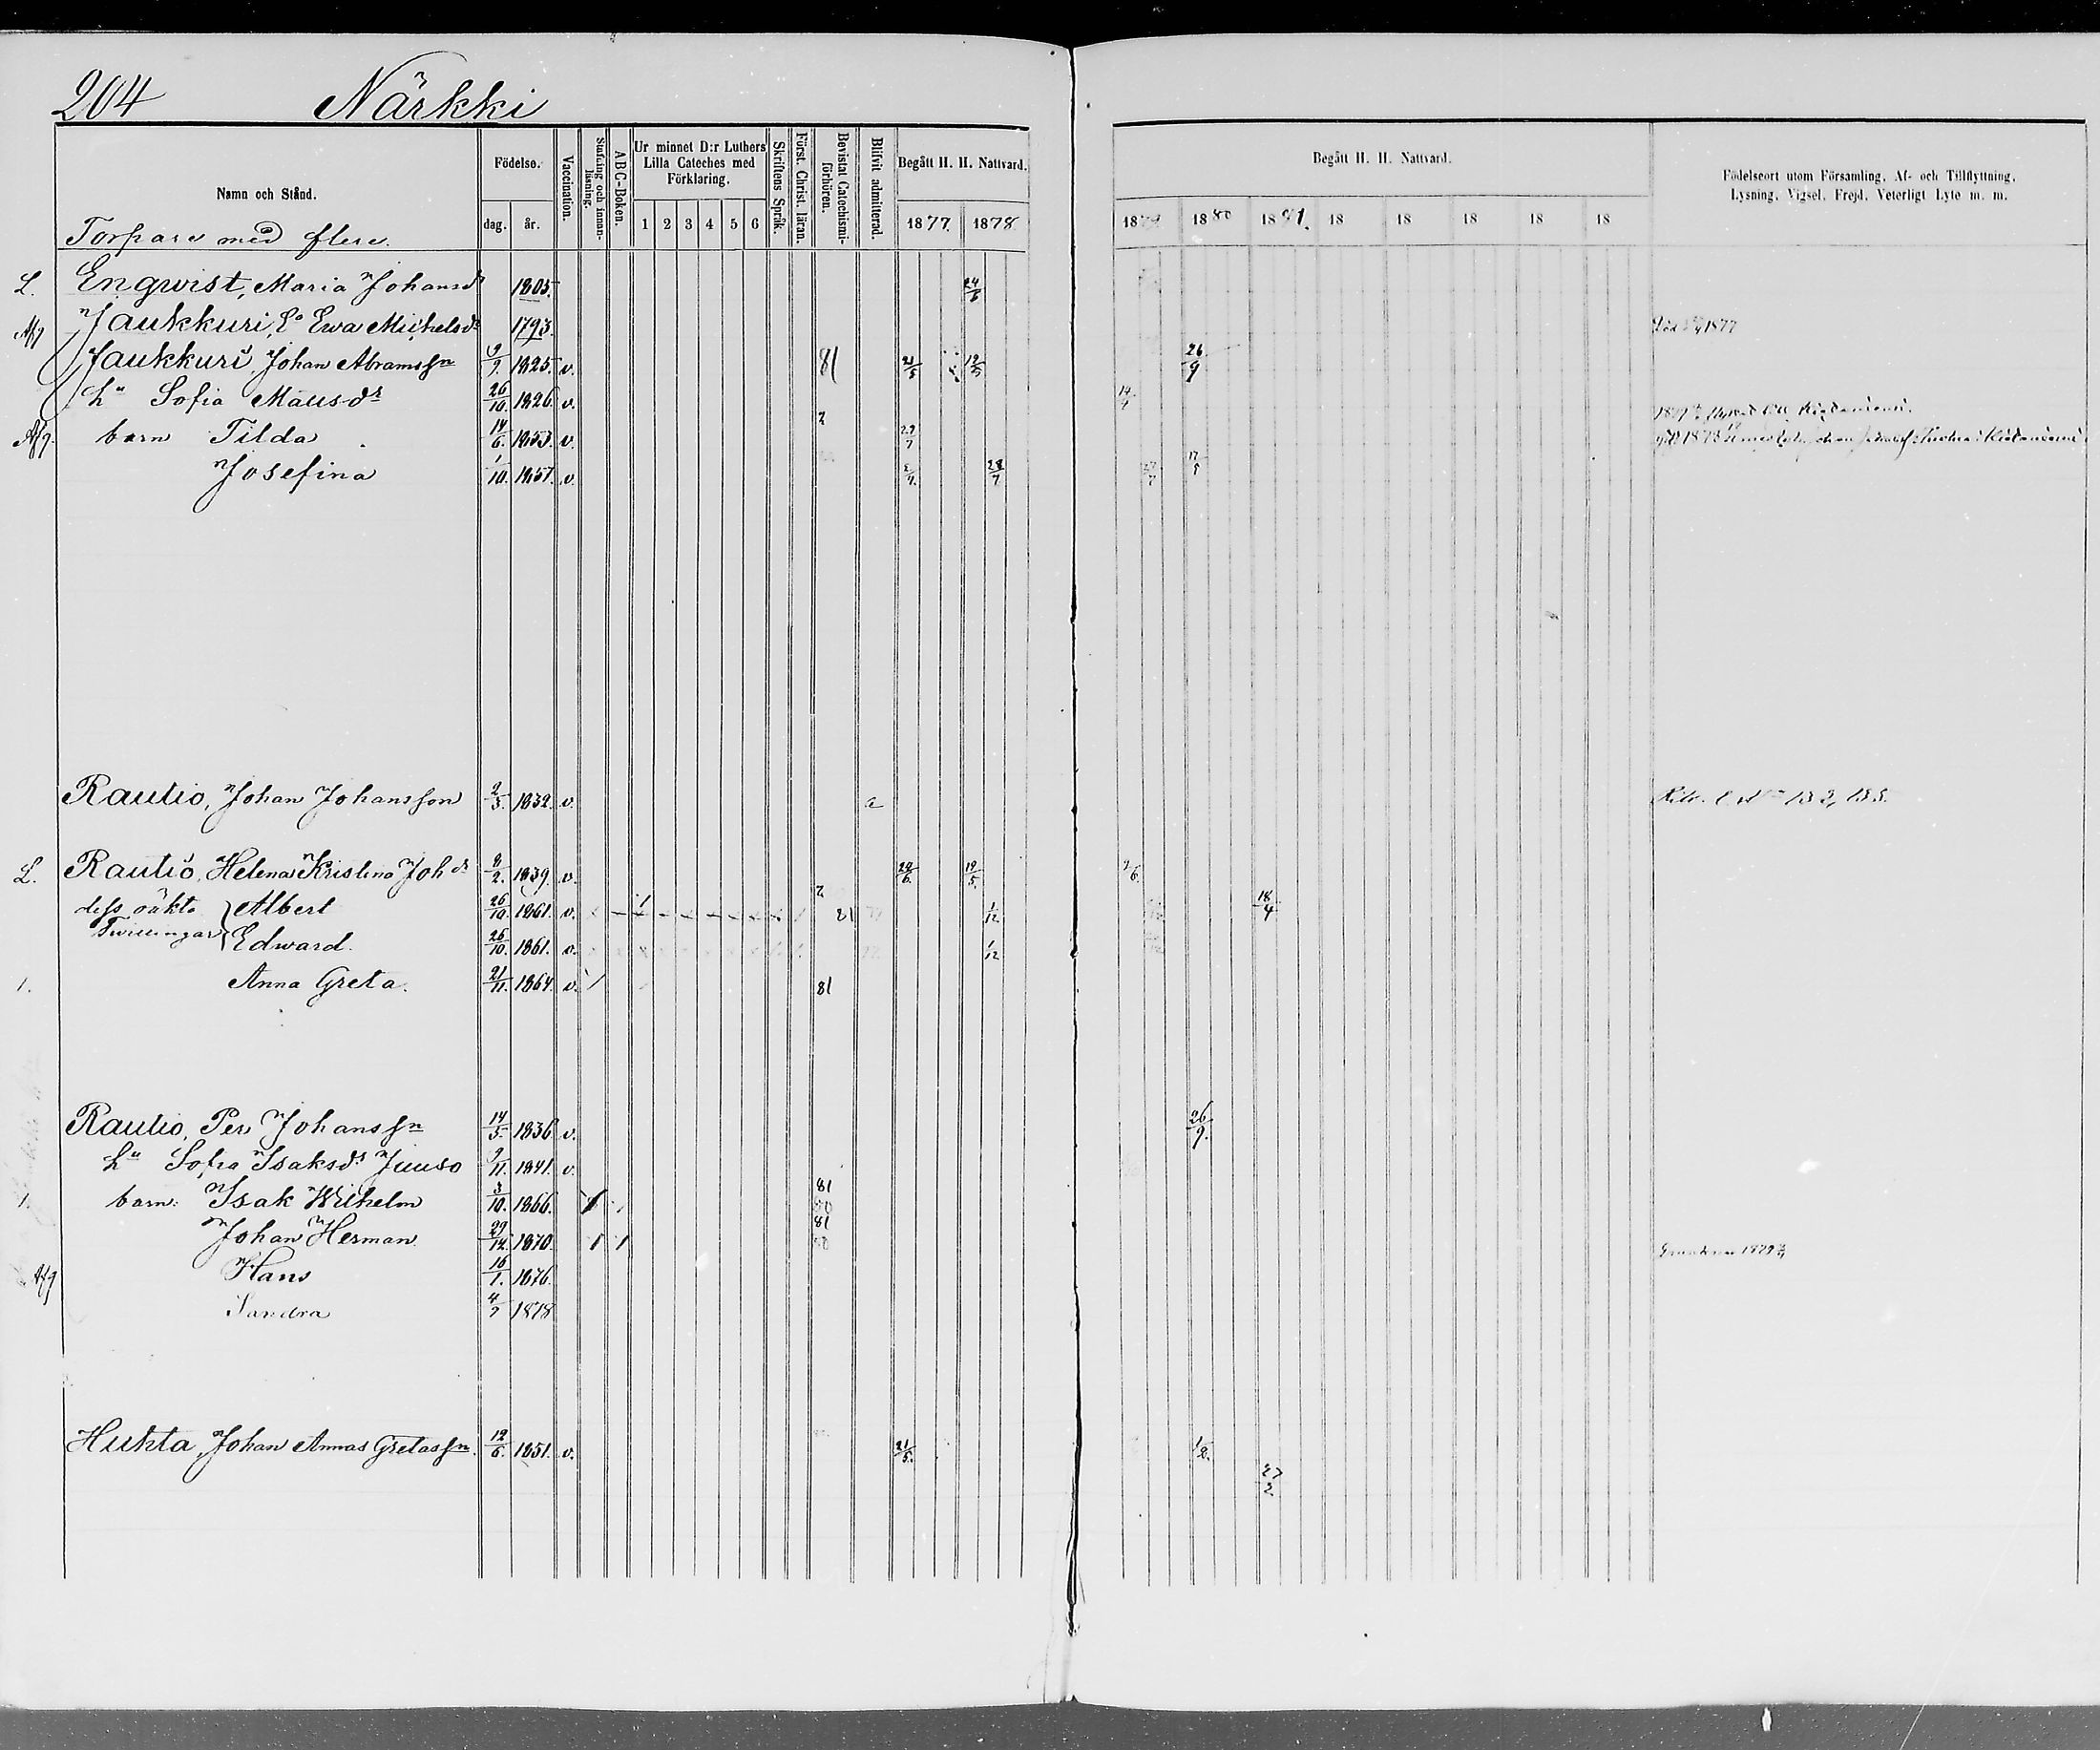 204 Närkki
Namn och Stånd. Födelse. dag. år. Vaccination. Stafning och innanläsning. ABC-Boken. Ur minnet D:r Luthers Lilla Cateches med Förklaring. 1 2 3 4 5 6 Skriftens Språk. Först. Christ. läran. Bevistat Catechismiförhören. Blifvit admitterad. Begått H. H. Nattvard. 1877. 1878
Begått H. H. Nattvard. 18 1880 1881. 18 18 18 18 18
Födelseort utom Församling, Af- och Tillflyttning, Lysning, Vigsel, Frejd, Veterligt Lyte m. m.
Torpare med flere.
L. Enqwist, Maria Johansdr 1805. 24/6
Afg Jaukkuri, Eo Ewa Michelsdr 1793. 1877
Jaukkuri, Johan Abramssn 9/9. 1825. v. 81 21/5 12/5 26/9
hu Sofia Mausdr 26/10. 1826. v. 14/4
Afg. barn Tilda 14/6. 1853. v. 29/7
Josefina 1/10. 1857. v. 2/7. 28/7 27/7 17/5
Rautio, Johan Johansson 2/3. 1832. v. a
L. Rautio, Helena Kristina Johdr 8/2. 1839. v. 24/6. 19/5. 2/6.
dess oäkta Albert 26/10. 1861. v. 1 81 1/12 18/4
Twillingar Edward. 26/10. 1861. v. 1/12
1. Anna Greta. 21/11. 1864. v. 81
Rautio, Per Johanssn 14/5. 1836. v. 26/9.
hu Sofia Isaksdr Juuso 9/11. 1841. v.
1. barn: Isak Wilhelm 3/10. 1866. 81
Johan Herman 29/12. 1870. 1 1 81 80
Afg Hans 16/1. 1876.
Sandra 4/7 1878
Huhta, Johan Annas Gretassn. 12/6. 1851. v. 21/5. 1/2.
27/2